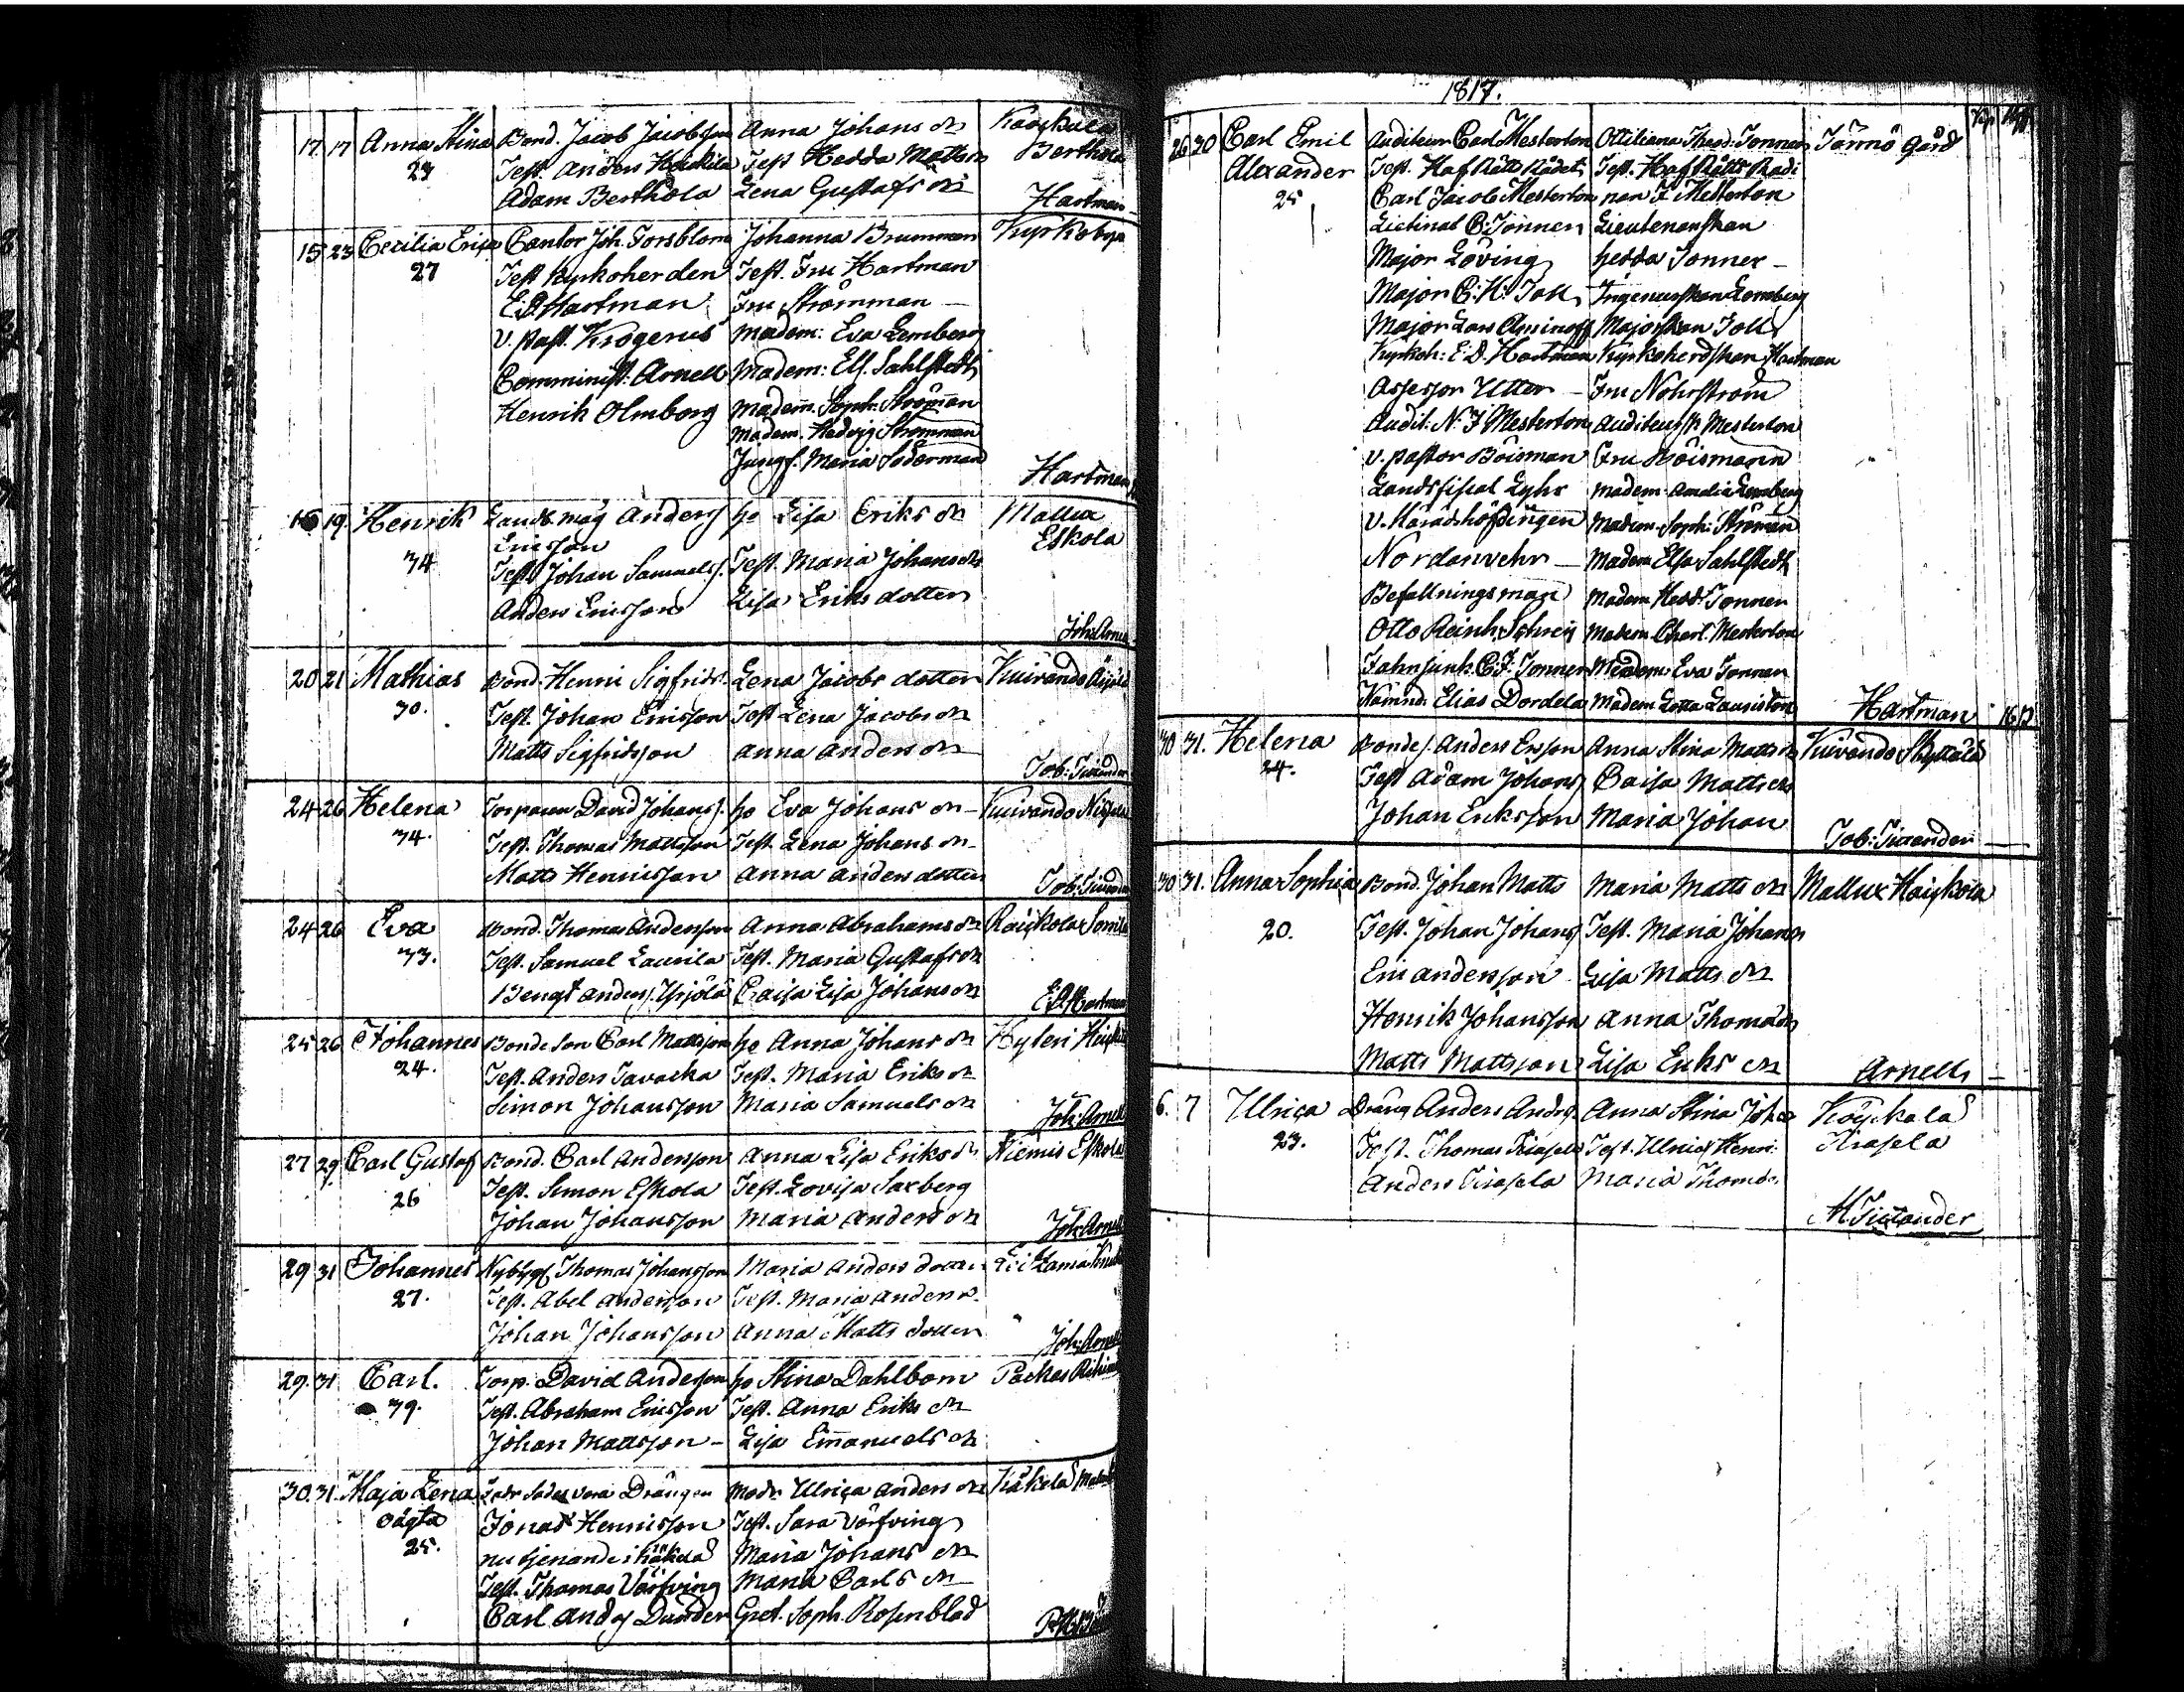 17 17 Anna Stina Bond. Jacob Jacobsson Anna Johans dr
23 Test. Anders Test. Hedda Matts dr Berthola
Adam Berthola Lena Gustafs dr Hartman
15 23 Cecilia Erica Cantor Joh. Forsblom Johanna Brumman Kyrkoby
27 Test Kyrkoherden Test. Fru Hartman
E.D. Hartman Fru Strömman
V. Past. Krogerus Madem: Eva Lemberg
Comminist: Arnell Madem: Els. Sahlstedt
Henrik Olmborg Madem. Soph. Ströman
Madem. Hedvig Strömman
Jungf. Maria Söderman
Hartman
19. Henrik Landb. måg Anders ho Lisa Eriks dr Mallux
Ericsson Eskola
34 Test. Johan Samuelss. Test. Maria Johans dr
Anders Ericsson Lisa Eriks dotter
Joh: Arnell
20 21 Mathias Bond. Henric Sigfrids. Lena Jacobs dotter Kuivando
30. Test. Johan Ericsson Test Lena Jacobs dr
Matts Sigfridsson Anna Anders dr
Tob: Tivander
24 26 Helena Torparen David Johanss. ho Eva Johans dr Kuivando
34. Test. Thomas Mattsson Test. Lena Johans dr
Matts Henricsson Anna Anders dotter
Tob: Tivander
24 26 Eva Bond. Thomas Andersson Anna Abrahams dr Raiskola
33. Test. Samuel Laurila Test. Maria Gustafs dr
Bengt Anderss. Caisa Lisa Johans dr E.D. Hartman
25 26 Johannes Bonde Son Carl Mattsson ho Anna Johans dr
24. Test. Anders Test. Maria Eriks dr
Simon Johansson Maria Samuels dr Joh: Arnell
27 29 Carl Gustaf Bond. Carl Andersson Anna Lisa Eriks dr Niemis Eskola
26 Test. Simon Eskola Test. Lovisa Saxberg
Johan Johansson Maria Anders dr Joh: Arnell
29 31 Johannes Nybygg. Thomas Johansson Maria Anders dotter
27. Test. Abel Andersson Test. Maria Anders d.
Johan Johansson Anna Matts dotter Joh: Arnell
29. 31 Carl. Torp. David Andersson ho Stina Dahlbom
39. Test. Abraham Ericsson Test. Anna Eriks dr
Johan Mattsson Lisa Emanuels dr
30. 31. Maja Lena Fadr Sades vara Drängen Modr. Ulrica Anders dr Käkelä
oägta Jonas Henricsson Test. Sara Värfving
25. nu tjenande i Käkelä Maria Johans dr
Test. Thomas Värfving Maria Carls dr
Carl Anders Dunder Gret. Soph. Rosenblad
1817.
26 30 Carl Emil Auditeur Carl Mesterton Ottiliana Theod. Tonner gård
Alexander Test. Hof Rätts Rådet Test. Hof Rätts Rådi
25 Carl Jacob Mesterton nan F. Mesterton
C. Tonner Lieutenanskan
Major Löving Hedda Tonner
Major C. H. Toll Ingenieurskan Lemberg
Major Lars Aminoff Majorskan Toll
Kyrkoh: E.D. Hartman Kyrkoherdskan Hartman
Assessor Utter Fru Nohrström
Audit: N. J. Mesterton Auditeursk. Mesterton
V. Pastor Böisman Fru Böismann
Landsfiscal Madem. Amalia Lemberg
V. Häradshöfdingen Madem. Soph. Ströman
Nordenvehr Madem. Elsa Sahlstedt
Befallningsman Madem. Hedd. Tonner
Otto Reinh. Madem Charl. Mesterton
Fahnjunk. C. F. Tonner Madem. Eva Tonner
Nämnd. Elias Dordela Madem Lotta Hartman
30 31. Helena Bondes. Anders Ersson Anna Stina Matts dr Kuivando Skyttälä
24. Test Adam Johans Caisa Matts dr
Johan Eriksson Maria Johan
Tob: Tivander
30 31. Anna Sophia Bond. Johan Matts Maria Matts dr Mallux
20. Test. Johan Johans Test. Maria Johans
Eric Andersson Lisa Matts dr
Henrik Johansson Anna Thomas dr
Matts Mattsson Lisa Eriks dr Arnell
6. 7 Ulrica Dräng Anders Anders. Anna Stina Johans
23. Test. Thomas Test. Ulrica Henri.
Anders Maria Thomas
Tivander